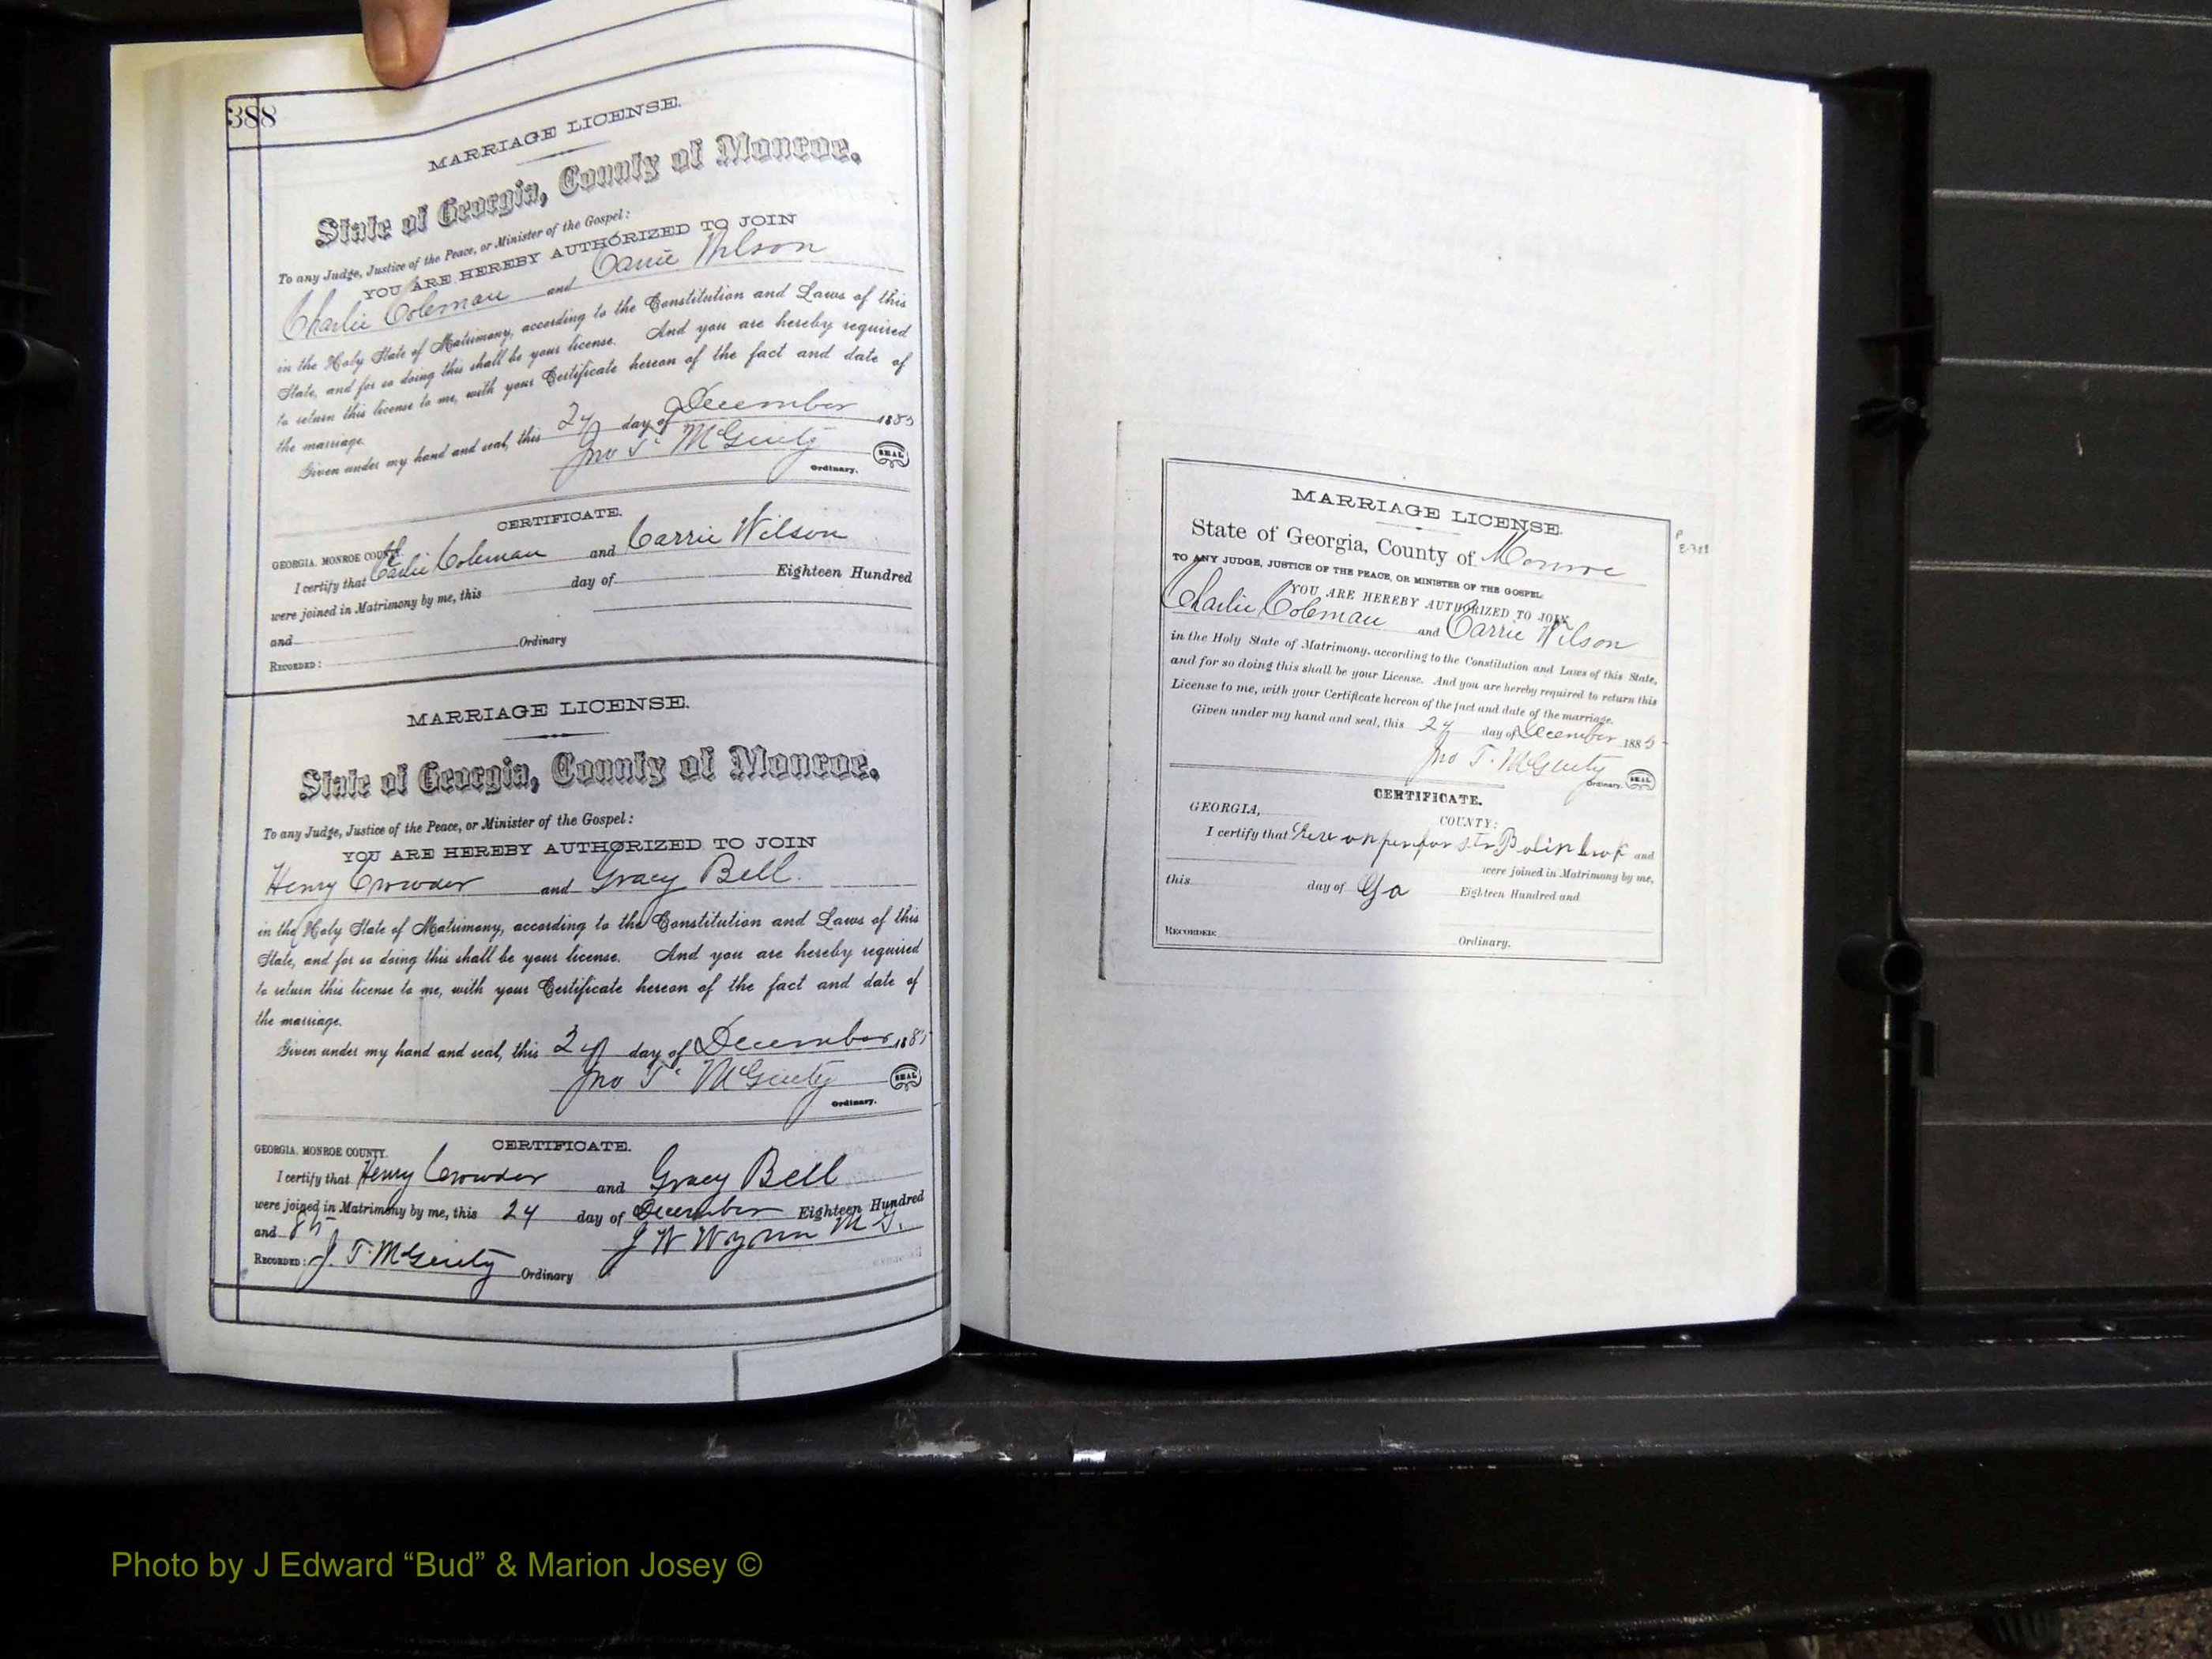 388
MARRIAGE LICENSE.
State of Georgia, County of Monroe.
To any Judge, Justice of the Peace, or Minister of the Gospel:
YOU ARE HEREBY AUTHORIZED TO JOIN
Charlie Coleman and Carrie Wilson
in the Holy State of Matrimony, according to the Constitution and Laws of this
State, and for so doing this shall be your license. And you are hereby required
to return this license to me, with your Certificate hereon of the fact and date of
the marriage.
Given under my hand and seal, this 24 day of December 1885
Jno T. McGinty SEAL
Ordinary.
CERTIFICATE.
GEORGIA, MONROE COUNTY.
I certify that Charlie Coleman and Carrie Wilson
were joined in Matrimony by me, this day of Eighteen Hundred
and
RECORDED: Ordinary
MARRIAGE LICENSE.
State of Georgia, County of Monroe.
To any Judge, Justice of the Peace, or Minister of the Gospel:
YOU ARE HEREBY AUTHORIZED TO JOIN
Henry Crowder and Gracy Bell.
in the Holy State of Matrimony, according to the Constitution and Laws of this
State, and for so doing this shall be your license. And you are hereby required
to return this license to me, with your Certificate hereon of the fact and date of
the marriage.
Given under my hand and seal, this 24 day of December 1885
Jno T. McGinty SEAL
Ordinary.
CERTIFICATE.
GEORGIA, MONROE COUNTY.
I certify that Henry Crowder and Gracy Bell
were joined in Matrimony by me, this 24 day of December Eighteen Hundred
and 85 J W Wynn M G.
RECORDED: J. T. McGinty Ordinary
MARRIAGE LICENSE.
State of Georgia, County of Monroe
TO ANY JUDGE, JUSTICE OF THE PEACE, OR MINISTER OF THE GOSPEL:
YOU ARE HEREBY AUTHORIZED TO JOIN
Charlie Coleman and Carrie Wilson
in the Holy State of Matrimony, according to the Constitution and Laws of this State,
and for so doing this shall be your License. And you are hereby required to return this
License to me, with your Certificate hereon of the fact and date of the marriage.
Given under my hand and seal, this 24 day of December 1885
Jno T. McGinty SEAL
Ordinary.
CERTIFICATE.
GEORGIA, COUNTY:
I certify that and
were joined in Matrimony by me,
this day of Ga Eighteen Hundred and
RECORDED: Ordinary.
Photo by J Edward “Bud” & Marion Josey ©